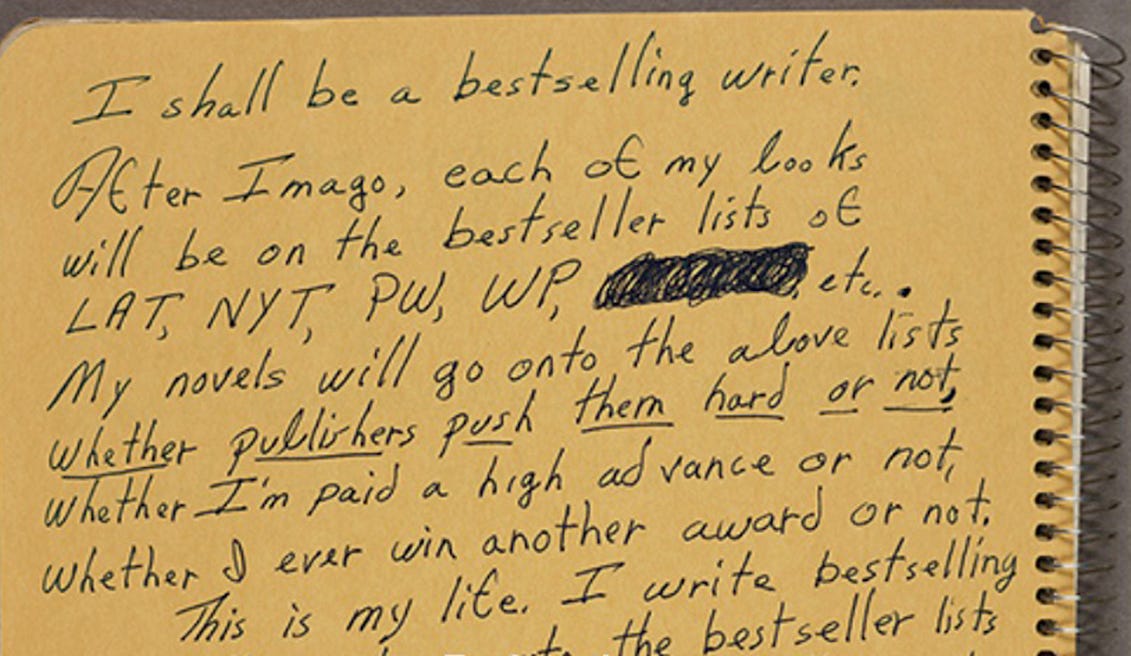 I shall be a bestselling writer.
After Imago, each of my books
will be on the bestseller lists of
LAT, NYT, PW, WP, , etc..
My novels will go onto the above lists
whether publishers push them hard or not,
whether I'm paid a high advance or not,
whether I ever win another award or not.
This is my life. I write bestselling
the bestseller lists